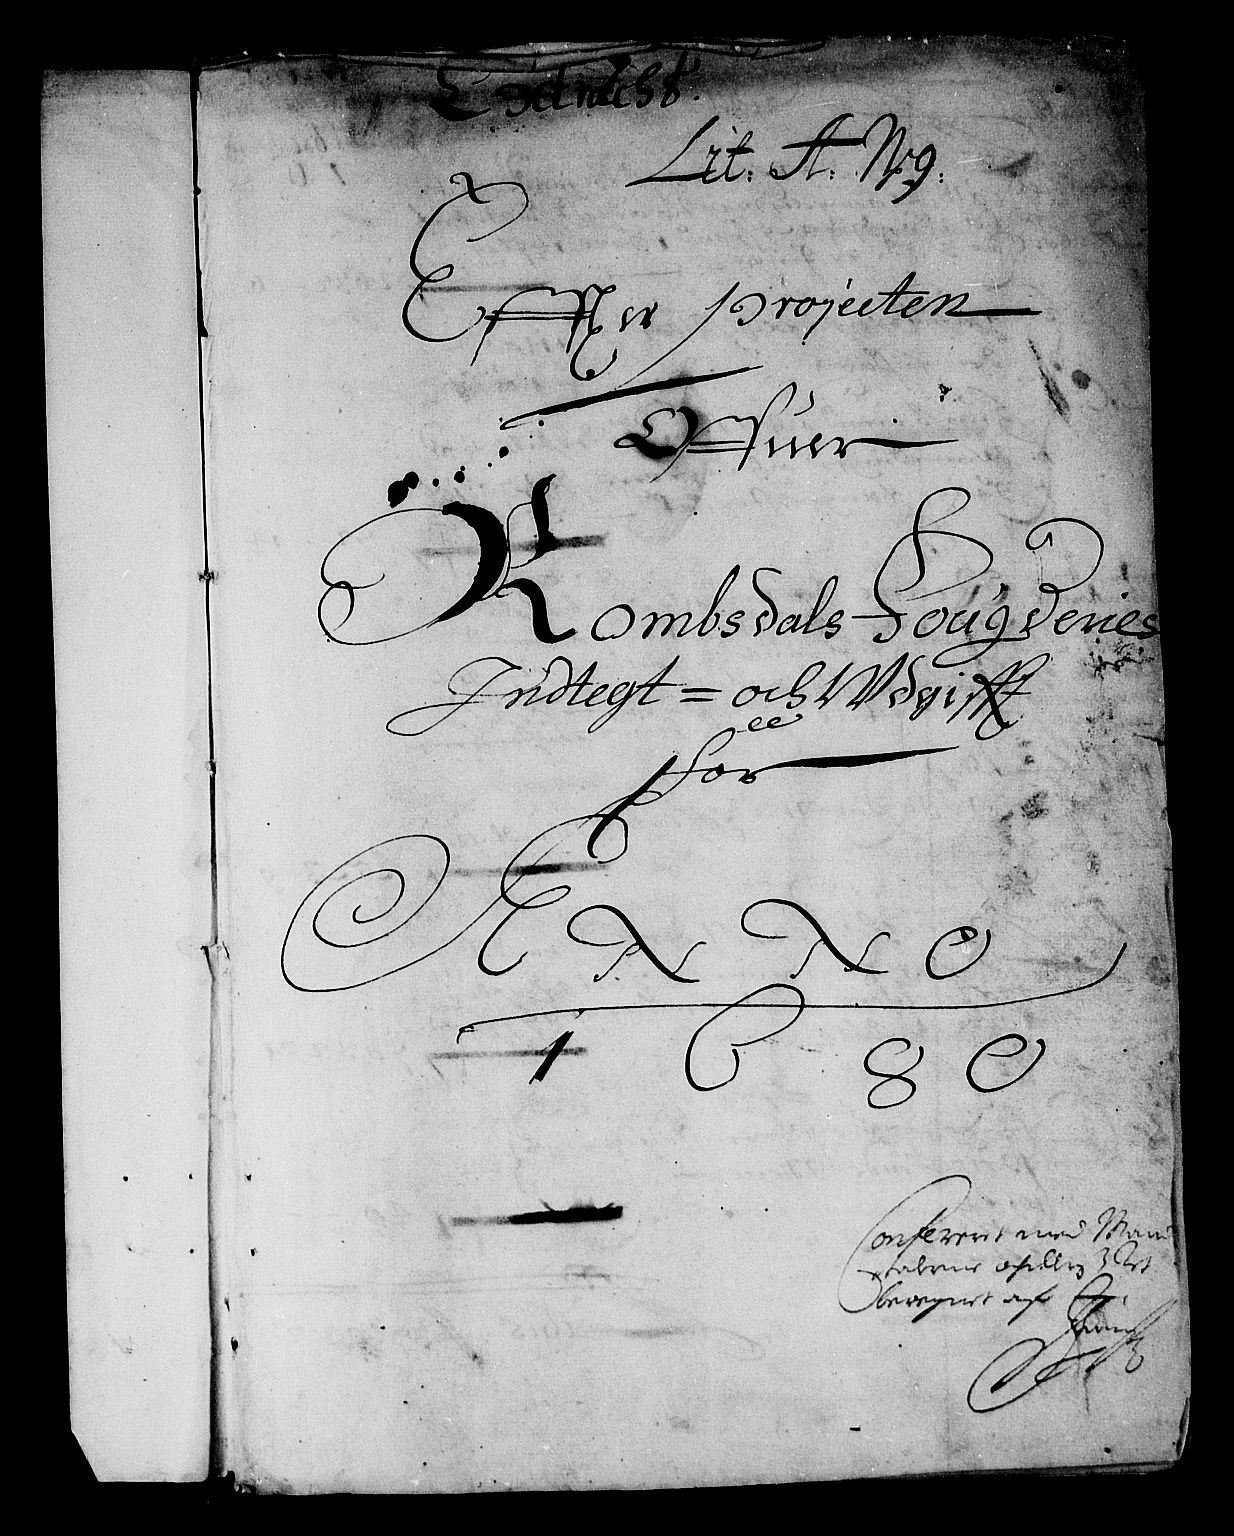 Extract
Lit. A. No 9.
Effter projecten
Offuer
Rombsdals Fougderies
Indtegt = och Wdgifft
for
ANNO
1680
Confererit med
beregnet af